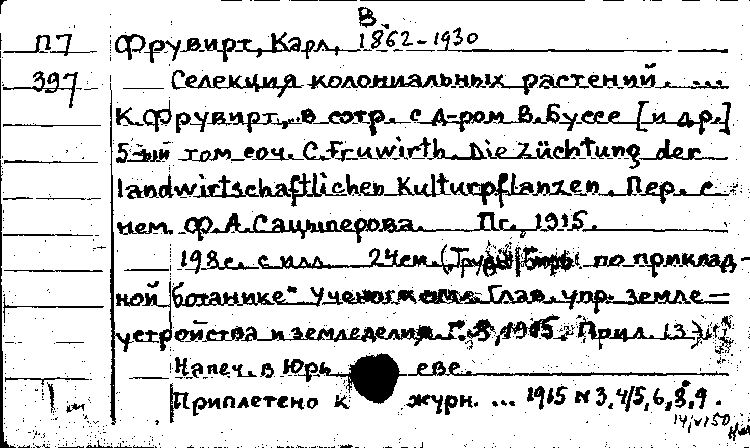 В.
П7 Фрувирт, Карл, 1862-1930
397 Селекция колониальных растений. ...
К. Фрувирт, в сотр. с д-ром В. Буссе [и др.]
5-ый том соч. C. Fruwirth. Die Züchtung der
landwirtschaftlichen Kulturpflanzen. Пер. с
нем. Ф.А. Сацыперова. Пг., 1915.
198 с. с илл. 24 см. (Труды Бюро по приклад-
ной ботанике" Глав. упр. земле-
устройства и земледелия. 1915. Прил. 13)
Напеч. в Юрьеве.
Приплетено к журн. ... 1915 № 3, 4/5, 6, 8, 9.